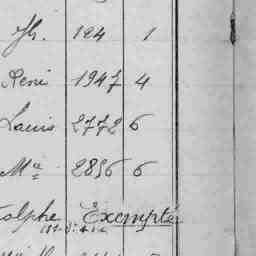 Jh. 124 1
René 1947 4
Louis 2772 6
Mce 2856 6
olphe Exempté